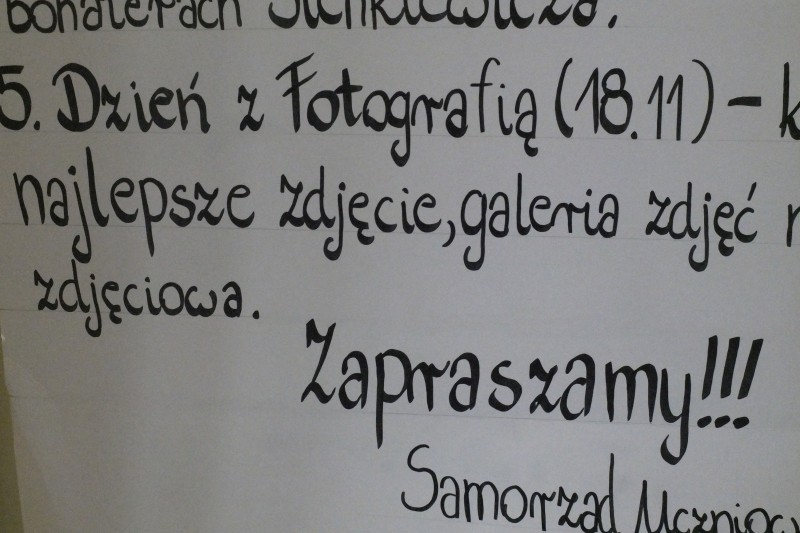 bohaterach Sienkiewicza.
5. Dzień z Fotografią (18.11) - k
najlepsze zdjęcie, galeria zdjęć
zdjęciowa.
Zapraszamy!!!
Samorząd Uczniow